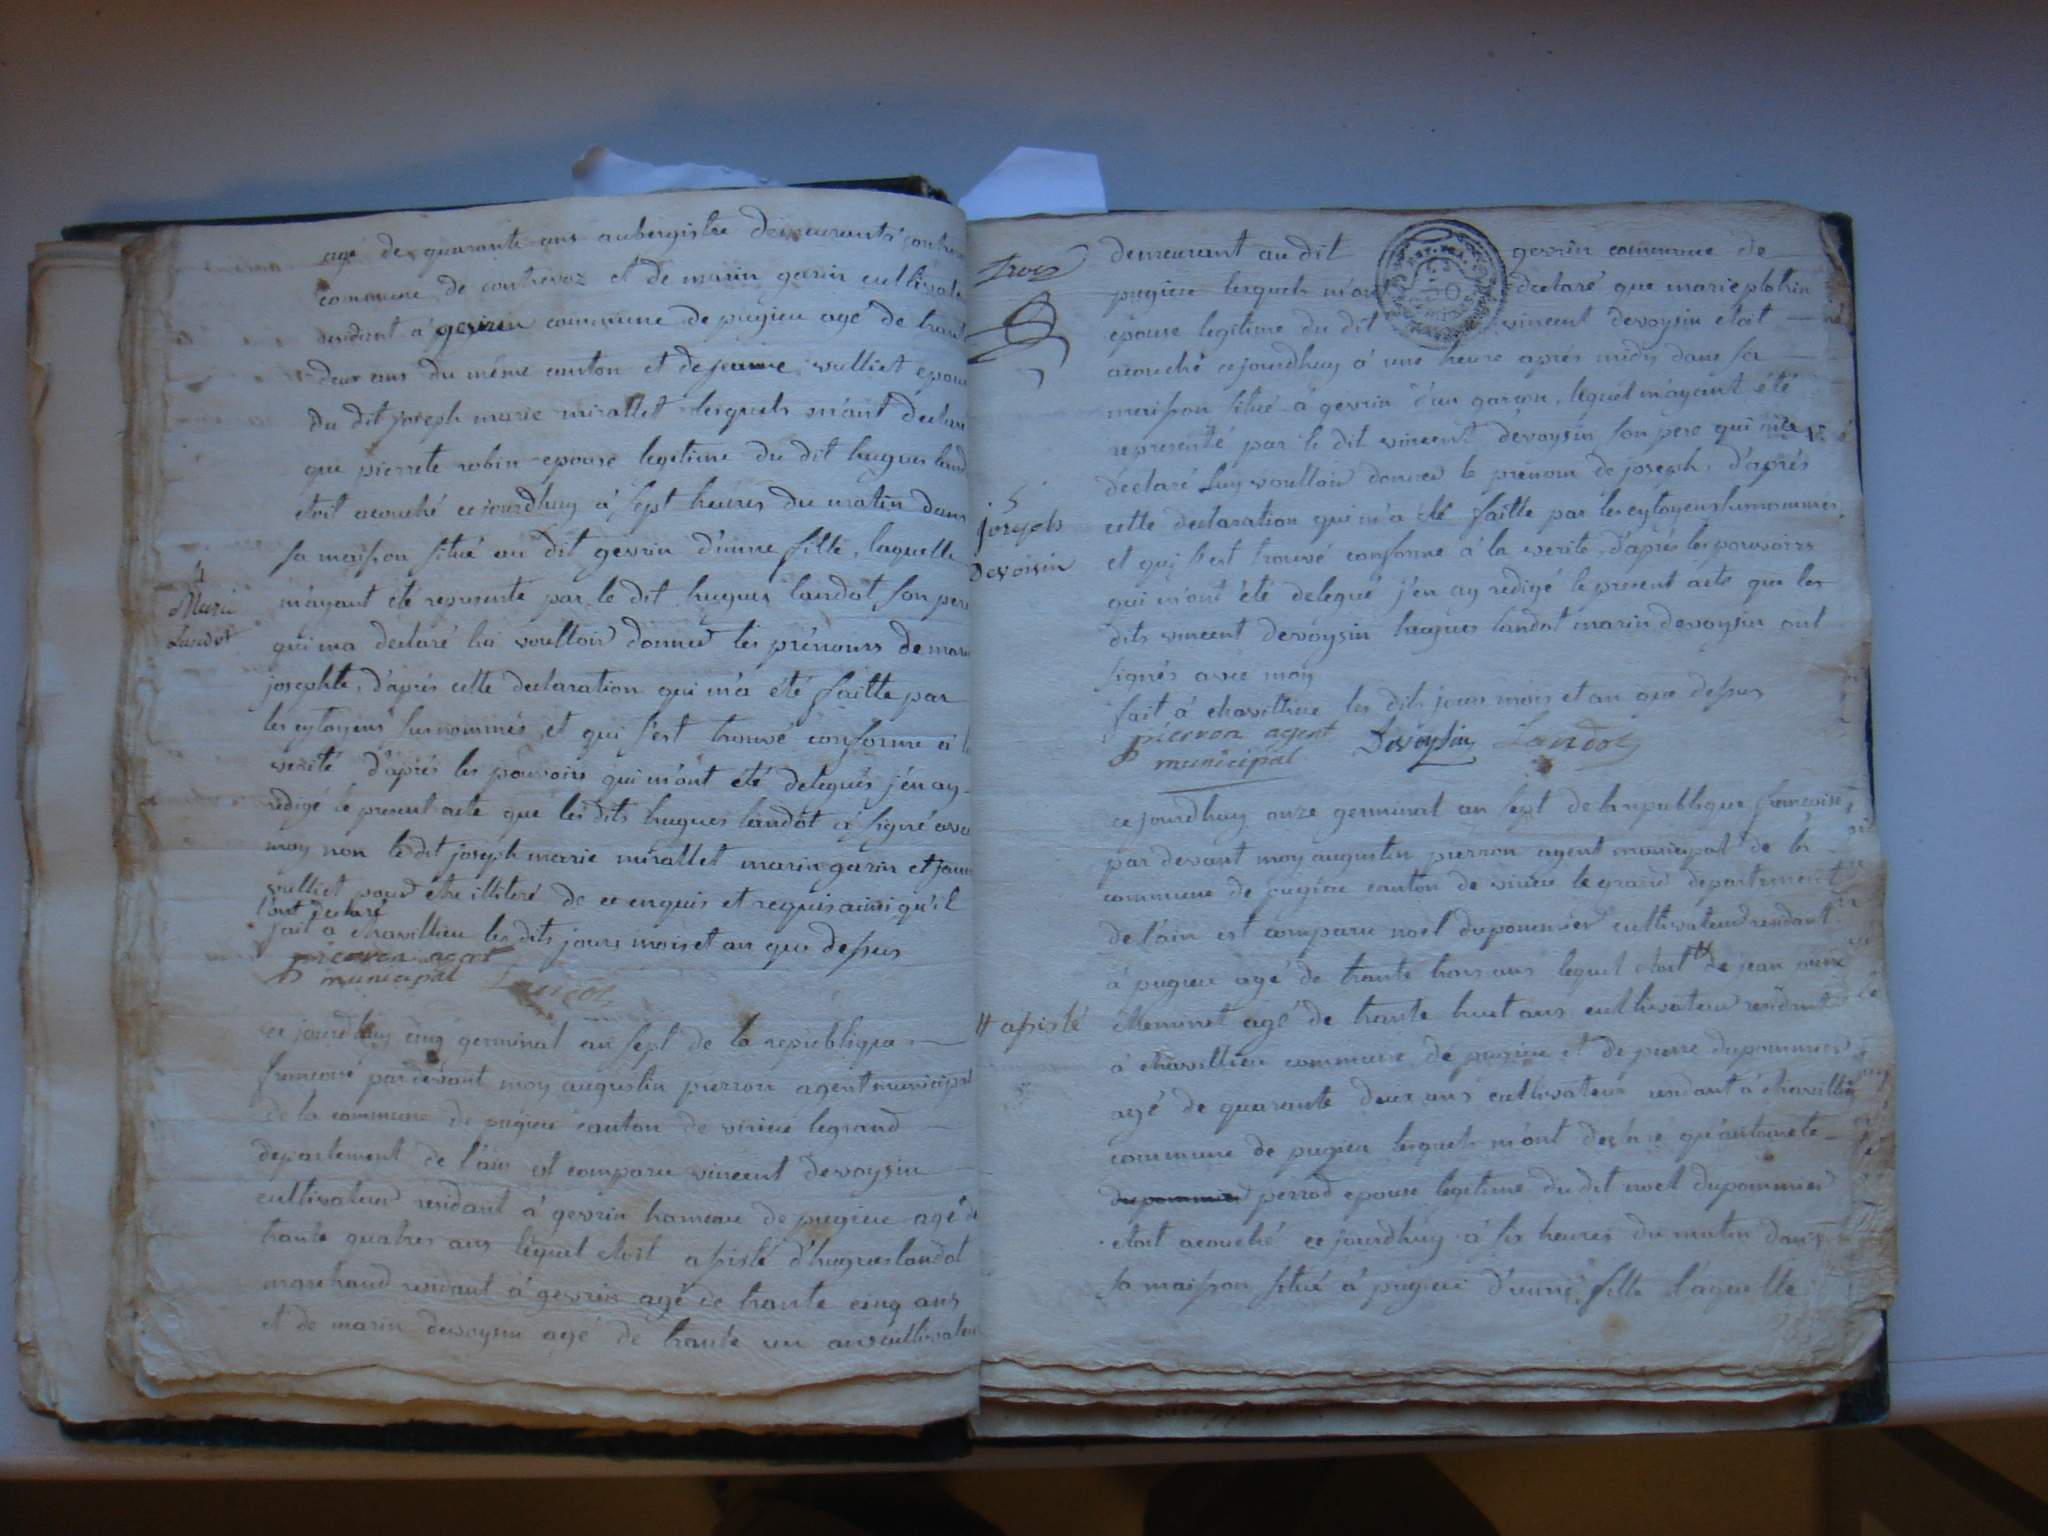 agé de quarante ans aubergiste demeurant à contrevoz
commune de contrevoz et de marin garin cultivateur
residant à gevrin commune de pugieu agé de trante
deux ans du même canton et de jeanne vulliet epouse
du dit joseph marie mirallet lesquels m'ont declaré
que pierrete robin epouse legitime du dit hugues landot
etoit acouché cejourdhuy à sept heures du matin dans
sa maison situé au dit gevrin d'unne fille, laquelle
4
Marie
Landot
m'ayant été represente par le dit hugues landot son pere
qui ma declaré lui voulloir donner les prénoms de marie
josephte, d'aprés cette declaration qui m'a été faitte par
les cytoyens surnommés, et qui s'est trouvé conforme à la
verité d'aprés les pouvoirs qui m'ont été delegués j'en ay
redigé le present acte que les dits hugues landot a signé avec
moy non le dit joseph marie mirallet marin garin et jeanne
vulliet pour etre illiteré de ce enquis et requis ainsi qu'il
l'ont declaré
fait a chavillieu les dits jours mois et an que dessus
pierron agent
municipal Landot
ce jourdhuy cinq germinal an sept de la republique
francoise pardevant moy augustin pierron agent municipal
de la commune de pugieu canton de virieu legrand
departement de l'ain est comparu vincent devoysin
cultivateur residant à gevrin hameau de pugieu agé de
trante quatres ans lequel etoit assisté d'hugues landot
marchand residant à gevrin agé de trante cinq ans
et de marin devoysin agé de trante un ans cultivateur
trois
demeurant au dit gevrin commune de
pugieu lesquels m'ont declaré que marie plotrin
epouse legitime du dit vincent devoysin etoit
acouché cejourdhuy à une heure aprés midy dans sa
maison situé à gevrin d'un garçon, lequel m'ayant été
representé par le dit vincent devoysin son pere qui m'a
declaré luy voulloir donner le prénom de joseph, d'aprés
5
joseph
devoisin
cette declaration qui m'a été faitte par les cytoyens surnommés
et qui s'est trouvé conforme à la verité, d'aprés les pouvoirs
qui m'ont été delegué j'en ay redigé le present acte que les
dits vincent devoysin hugues landot marin devoysin ont
signés avec moy
fait à chavillieu les dits jours mois et an que dessus
pierron agent Devoysin Landot
municipal
ce jourdhuy onze germinal an sept de la republique françoise
par devant moy augustin pierron agent municipal de la
commune de pugieu canton de virieu le grand departement
de l'ain est comparu noel dupommier cultivateur residant
à pugieu agé de trante trois ans lequel etoit # de jean
# assisté
Cheminet agé de trante huit ans cultivateur residant
à chavillieu commune de pugieu et de pierre dupommier
agé de quarante deux ans cultivateur residant à chavillieu
commune de pugieu lesquels m'ont declaré qu'antoinete
dupommier perrod epouse legitime du dit noel dupommier
etoit acouché ce jourdhuy à six heures du matin dans
sa maison situé à pugieu d'unne fille laquelle